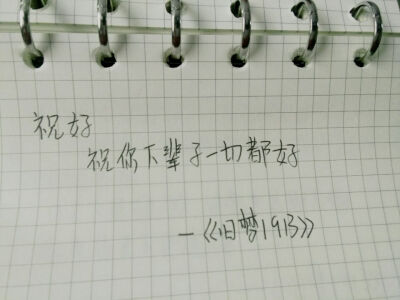 祝好
祝你下辈子一切都好
—《旧梦1913》